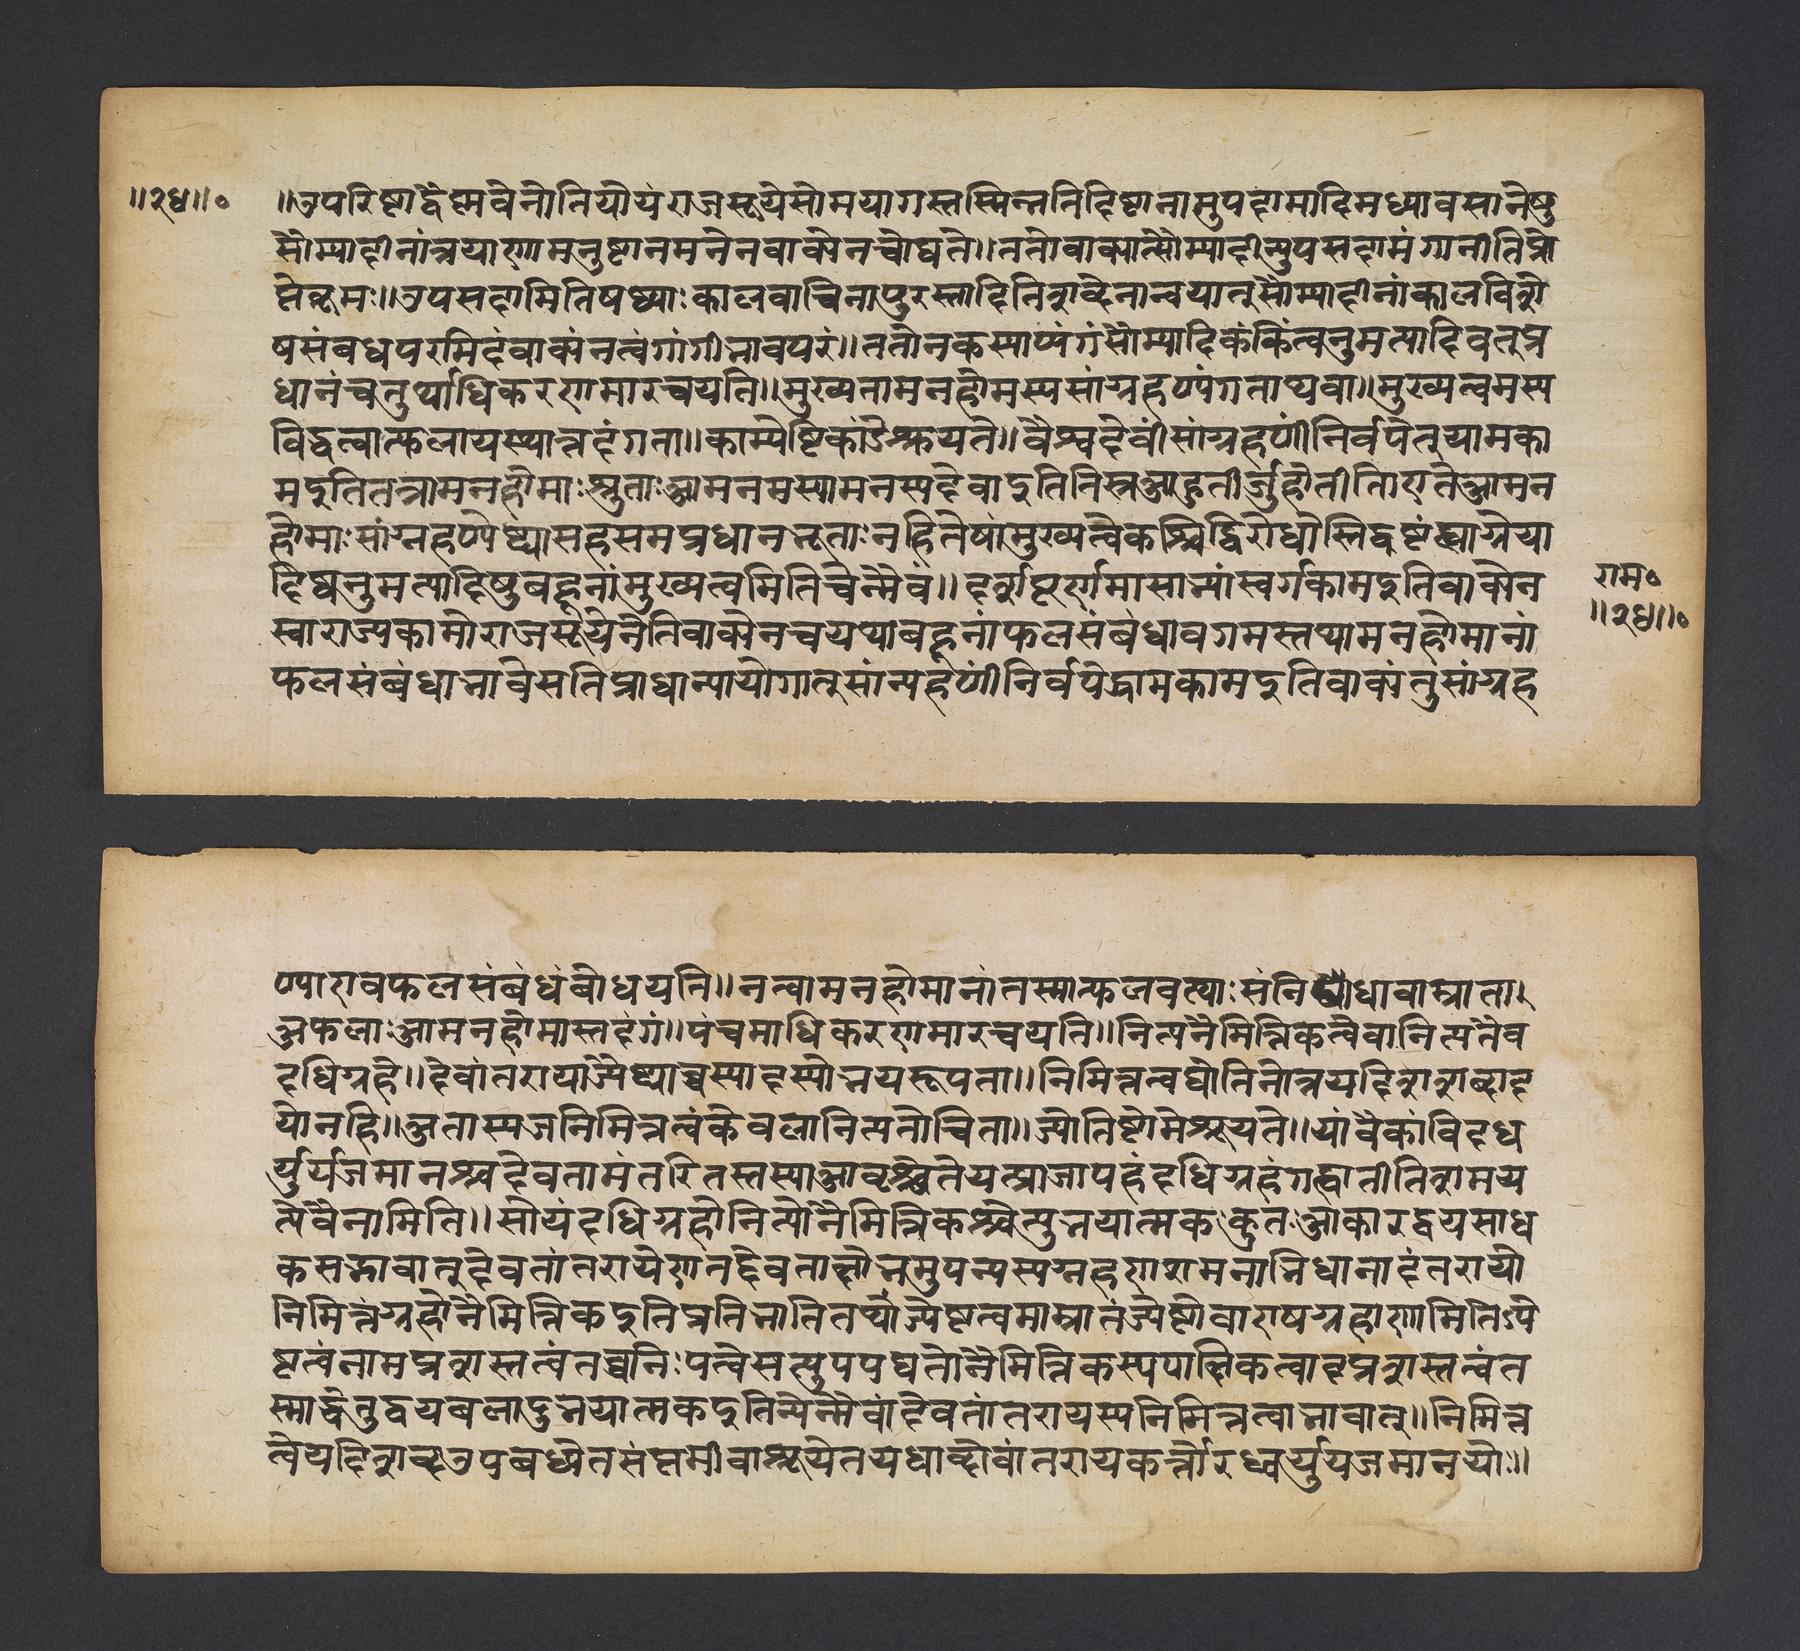 ॥२४॥०
॥उपरिष्टाद्वैष्मवेनोतियोयंराजसूयेसोमयागस्तस्मिन्नतिदिष्टानामुपहामादिमध्यावसानेषु
सौम्यादीनांत्रयाणामनुष्टानमनेनवाक्येनचोद्यते॥ततोवाक्यात्सौम्यादीन्युपसदामंगानीतिप्रा
प्तेब्रूमः॥उपसदामितिषष्ठ्याःकालवाचिनापुरस्तादितिशब्देनान्वयात्सौम्यादीनांकालविशे
षसंबंधपरमिदंवाक्यंनत्वंगांगीभावपरं॥ततोनकस्याप्यंगंसौम्यादिकंकिंत्वनुमत्यादिवत्प्र
धानंचतुर्थाधिकरणमारचयति॥मुख्यतामनहोमस्यसांग्रहण्यंगताथवा॥मुख्यत्वमस्य
विद्धत्वात्फलायस्यात्तदंगता॥काम्येष्टिकांडेश्रूयते॥वैश्वदेवींसांग्रहणींनिर्वपेत्ग्रामका
मइतितत्रामनहोमाःश्रुताःआमनमस्यामनस्यदेवाइतितिस्रआहुतीर्जुहोतीतिएतेआमन
होमाःसांग्रहण्येष्ट्यासहसमप्रधानभूताःनहितेषांमुख्यत्वेकश्चिद्विरोधोस्तिदृष्टंह्याग्नेया
दिष्वनुमत्यादिषुबहूनांमुख्यत्वमितिचेन्मैवं॥दर्शपूर्णमासाभ्यांस्वर्गकामइतिवाक्येन
स्वाराज्यकामोराजसूयेनेतिवाक्येनचयथाबहूनांफलसंबंधावगमस्तथामनहोमानां
फलसंबंधाभावेसतिप्राधान्यायोगात्सांग्रहणींनिर्वपेद्ग्रामकामइतिवाक्यंतुसांग्रह
राम०
॥२४॥०
ण्याएवफलसंबंधंबोधयति॥नन्वामनहोमानांतस्मात्फलवत्याःसंनिधावाम्नाता
अफलाःआमनहोमास्तदंगं॥पंचमाधिकरणमारचयति॥नित्यनैमित्तिकत्वेवानित्यतैव
दधिग्रहे॥देवांतरायाज्येष्ट्याच्चस्यादस्योभयरूपता॥निमित्तत्वद्योतिनोत्रयदिशब्दाद
योनहि॥अतास्यजनिमित्तत्वंकेवलानित्यतोचिता॥ज्योतिष्टोमेश्रूयते॥यांवैकांविदध
र्युर्यजमानश्चदेवतामंतरितस्तस्याआवृश्च्येतेयत्प्राजापत्यंदधिग्रहंगृह्णातीतिशमय
त्येवैनामिति॥सोयंदधिग्रहोनित्योनैमित्तिकश्चेत्युभयात्मककुतःआकारद्वयसाध
कसद्भावात्देवतांतरायेण
निमित्तंग्रहोनैमित्तिकइतिप्रतिभातितथाज्येष्टत्वमाम्नातंज्येष्टोवाएषग्रहाणामितिज्ये
ष्टत्वंनामप्रशस्तत्वंतच्चनित्यत्वेसत्युपपद्यतेनैमित्तिकस्यपाक्षिकत्वादप्रशस्तत्वंत
स्माद्धेतुद्वयबलादुभयात्मकइतिचेन्मैवांदेवतांतरायस्यनिमित्तत्वाभावात्॥निमित्त
त्वेयदिशब्दउपबध्येतसप्तमीवाश्रूयेतयथाक्षीवांतरायकर्त्रोरध्वर्युयजमानयोः॥